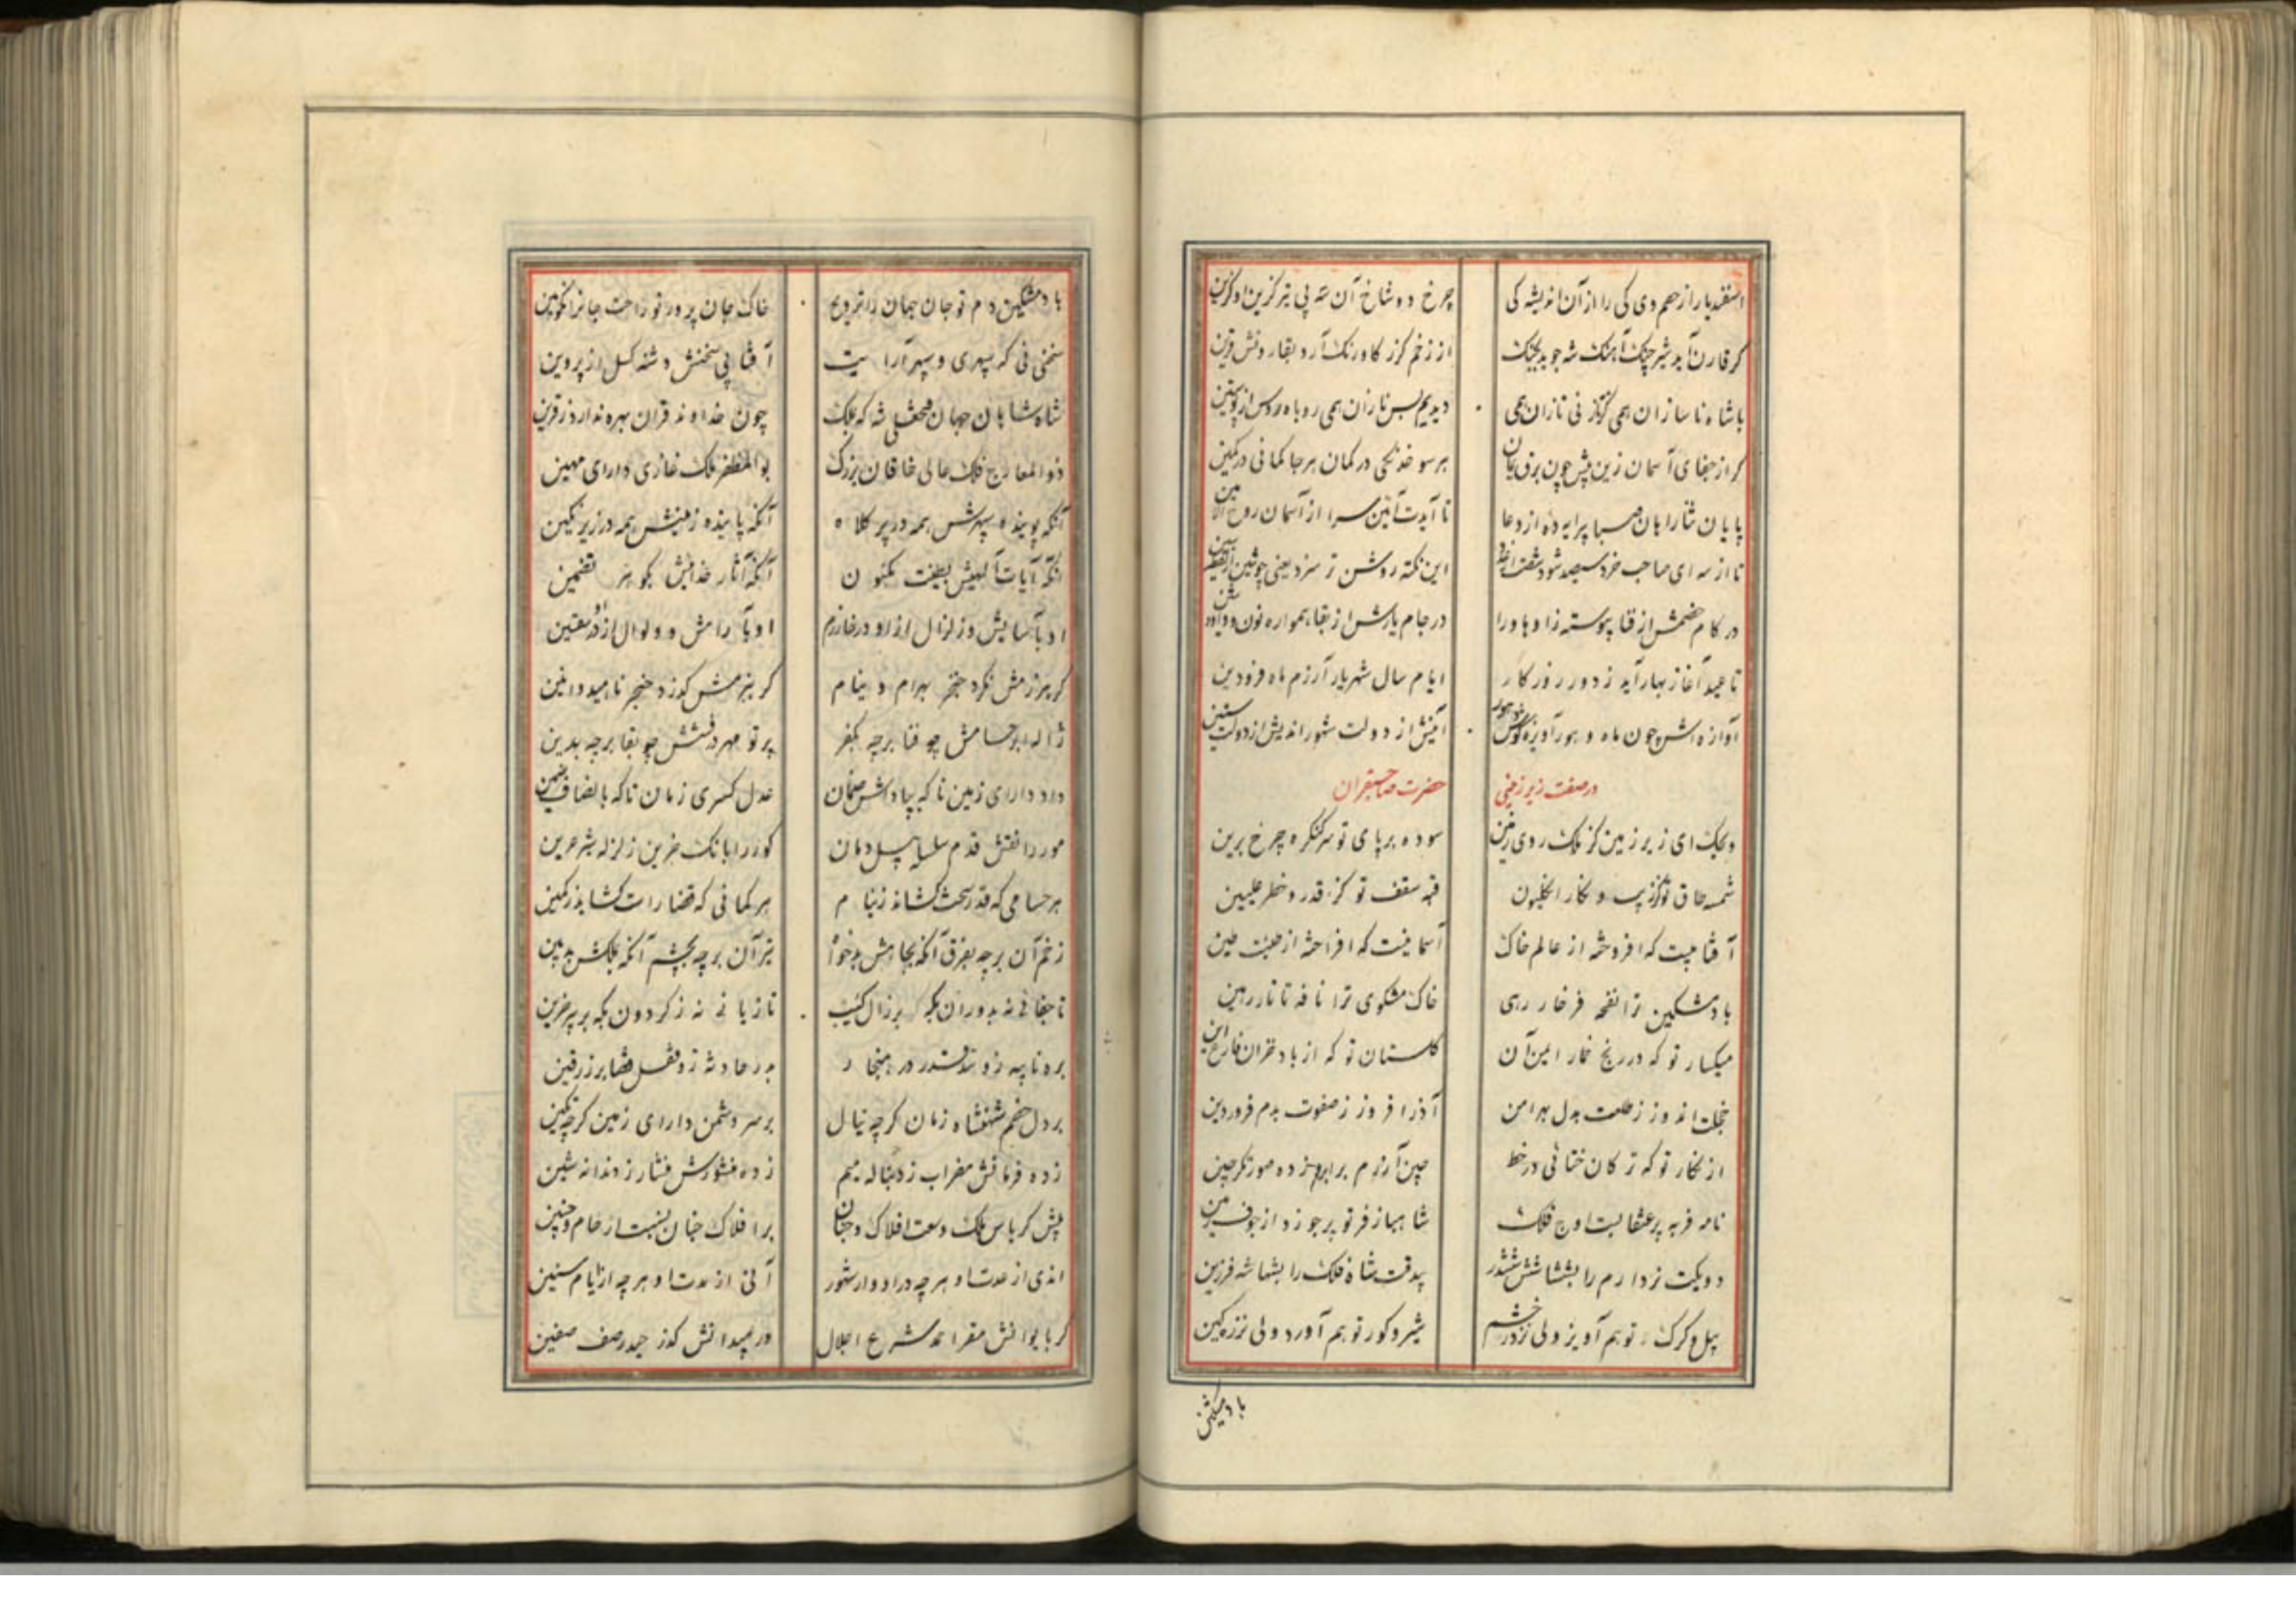 اسفندیار از حهم دی کی را از آن اندیشه کی چرخ دو شاخ آن شه پی تیر گزین او گزین
کر قارن آید شیر چنک آهنک شه جوید بجنک از زخم کرز کاو رنک آرد بقارونش قرین
با شاه ناسازان همی کرتاز نی تازان همی دیدیم بس نازان همی روباه روس از پوستین
کر از جفای آسمان زین پیش چون برق یمان هر سو خدنکی در کمان هر جا کمانی در کمین
پایان ثنا را هان صبا پیرایه ده از دعا تا آیدت آمین سرا از آسمان روح الامین
تا از سه ای صاحب خرد سیصد شود شصت این نکته روشن تر سزد یعنی چو شین
در کام خصمش از فنا پیوسته زا و ها و را در جام یارش از بقا همواره نون و واو و شین
تا عید آغاز بهار آید ز دور روزکار ایام سال شهریار آرزم ماه فرودین
آوازه اش چون ماه و هور آویزه کوش از دولت شهور اندیش از دولت سنین
در صفت زیر زمینی حضرت صاحبقران
ویحک ای زیر زمین کز فلک روی زمین سوده بر پای تو سر کنکره چرخ برین
شمسه طاق تو کز زیب و نکار انکلیون قبه سقف تو کز قدر و خطر علیین
آفتابیست که افروخته از عالم خاک آسمانیست که افراخته از طینت طین
باد مشکین ترا نفحه فرخار رهی خاک مشکوی ترا نافه تاتار رهین
میکسار تو که در رنج خمار ایمن آن کلستان تو که از باد خزان فارغ این
خجلت اندوز ز طلعت بدل بهرامن آذر افروز ز صفوت بدم فروردین
از نکار تو که ترکان ختائی در خط چین آرزم بر ابرو زده صورتکر چین
نامه فربه پر عنقا بست اوج فلک شاهباز فر تو پر چو زد از جوف زمین
دو یکت نرد ارم را بششا شش ششدر بیدقت شاه فلک را بشها شه فرزین
پیل و کرک تو بهم آویز ولی نز در خشم شیر و کور تو بهم آورد ولی نز ره کین
باد مشکین
باد مشکین دم تو جان جهان را ترویح خاک جان پرور تو راحت جانرا تکوین
سخنی نی که سپهری و سپهر آرایت آفتابی سخنش دشنه کسل از پروین
شاه شاهان جهان فتحعلی شه که بملک چون خداوند قران بهره ندارد ز قرین
ذوالمعارج فلک عالی خاقان بزرک بوالمظفر ملک غازی دارای مهین
آنکه پوینده سپهرش همه در پر کلاه آنکه پاینده زمینش همه در زیر نکین
آنکه آیات الهیش بطینت مکنون آنکه آثار خدائیش بکوهر تضمین
او بآسایش و زلزال از او در خارزم او بآرامش و ولوال از او در سقین
کر ببزمش نکرد خنجر بهرام و نیام کر ببزمش کذرد خنجر ناهید و انین
ژاله ابر حسامش چو فنا بر چه بکفر پرتو مهر درفشش چو بقا بر چه بدین
داد دارای زمین تا که بپاداش ضمان عدل کسری زمان تا که بانصاف ضمین
مور را نقش قدم سلسله پیل دمان کور را بانک حزین زلزله شیر عرین
هر حسامی که قدر سخت کشاند ز نیام هر کمانی که قضا راست کشاید ز کمین
زخم آن بر چه بفرق آنکه بجاهش بدخواه تیر آن بر چه بچشم آنکه بملکش بدبین
تا جفائی نه بدوران بکه بر زال کئیب تازیانه نه ز کردون بکه بر پیر حزین
ره نائبه زو بند قدر در هنجار در حادثه زو قفل قضا بر زرفین
بر دل خصم شهنشاه زمان کرچه نیال بر سر دشمن دارای زمین کرچه تکین
زده فرمانش مضراب ز دنباله میم زده منشورش منشار ز دندانه شین
پیش کرباس ملک وسعت افلاک و جنان بر افلاک جنان نسبت ارحام و جنین
اندی از مدت او هر چه در ادوار شهور آنی از مدت او هر چه از ایام سنین
کر بایوانش مقر احمد شرع اجلال ور بمیدانش کذر حیدر صف صفین